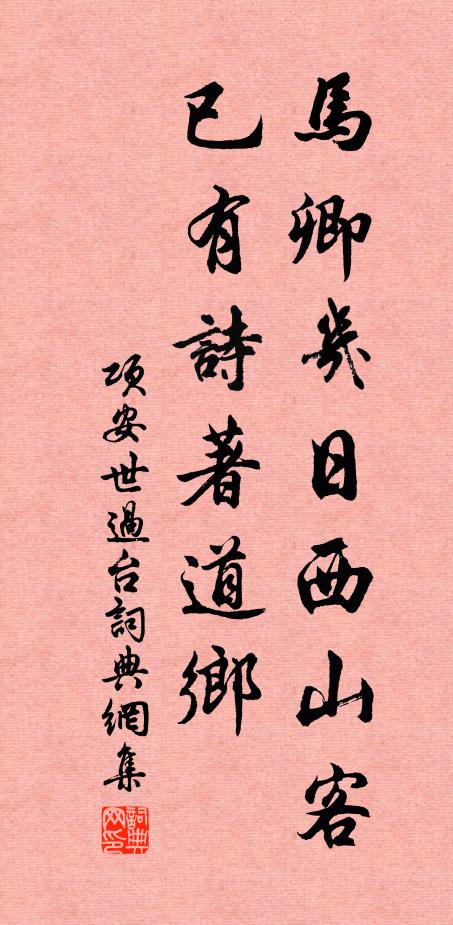 馬卿幾日西山客
已有詩著道鄉
項安世過台詞典網集
詞典
网印